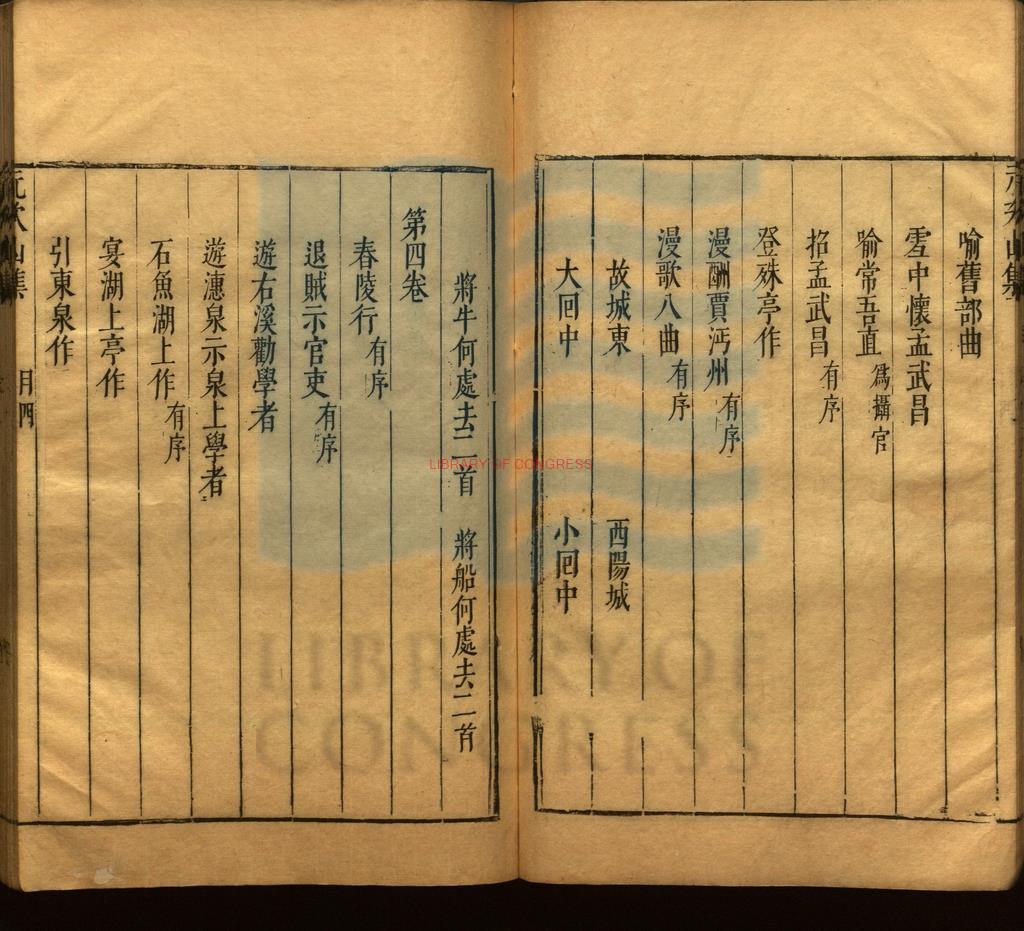 喻舊部曲
雪中懷孟武昌
喻常吾直 為攝官
招孟武昌 有序
登殊亭作
漫酬賈沔州 有序
漫歌八曲 有序
故城東 西陽城
大回中 小回中
將牛何處去二首 將船何處去二首
第四卷
舂陵行 有序
退賊示官吏 有序
遊右溪勸學者
遊潓泉示泉上學者
石魚湖上作 有序
宴湖上亭作
引東泉作
LIBRARY OF CONGRESS
LIBRARY OF
CONGRESS